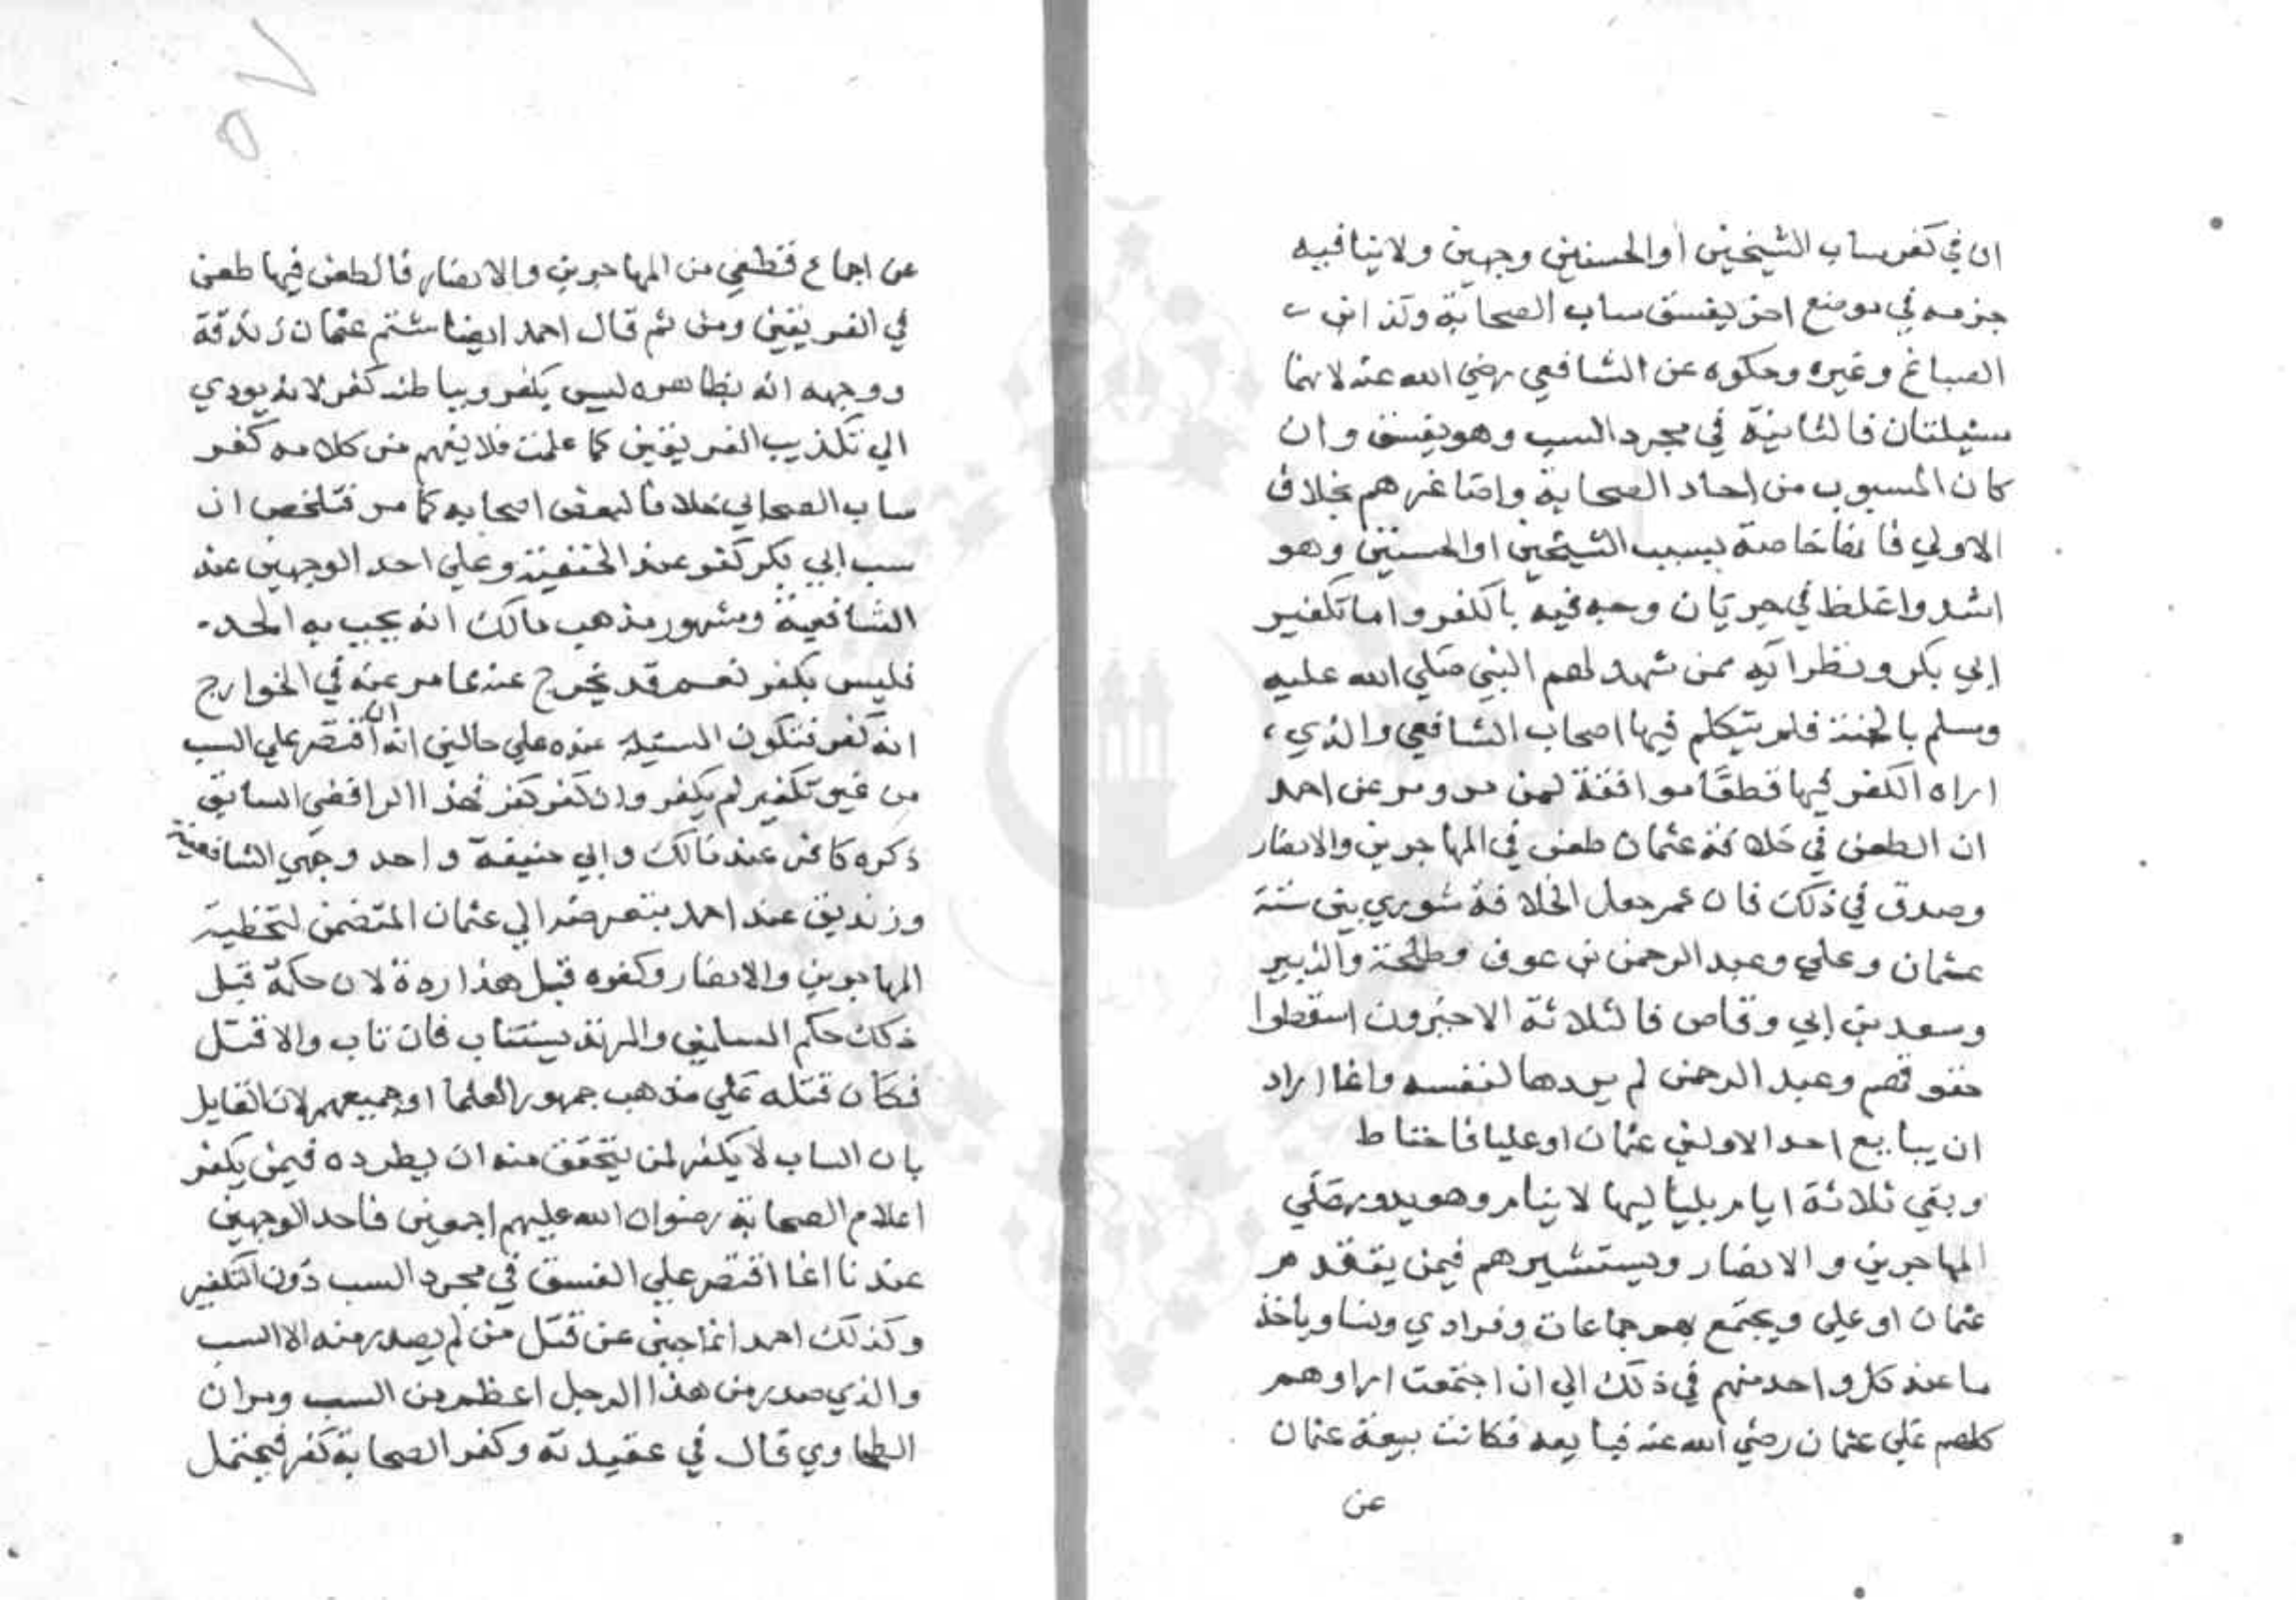 ان في كفر ساب الشيخين او الحسنين وجهين ولا ينافيه
جزمه في موضع اخر يفسق ساب الصحابة وكذا ابن
الصباغ وغيره وحكوه عن الشافعي رضي الله عنه لانهما
مسئلتان فالثانية في مجرد السب وهو يفسق وان
كان المسبوب من احاد الصحابة واصاغرهم بخلاف
الاولي فانها خاصة بسبب الشيخين او الحسنين وهو
اشد واغلظ في جريان وجه فيه بالكفر واما تكفير
ابي بكر ونظرايه ممن شهد لهم النبي صلي الله عليه
وسلم بالجنة فلم يتكلم فيها اصحاب الشافعي والذي
اراه الكفر فيها قطعا موافقة لمن مر ومر عن احمد
ان الطعن في خلافة عثمان طعن في المهاجرين والانصار
وصدق في ذلك فان عمر جعل الخلافة شوري بين ستة
عثمان وعلي وعبد الرحمن بن عوف وطلحة والزبير
وسعد بن ابي وقاص فالثلاثة الاخيرون اسقطوا
حقوقهم وعبد الرحمن لم يردها لنفسه وانما اراد
ان يبايع احد الاولين عثمان او عليا فاحتاط
وبقي ثلاثة ايام بلياليها لا ينام وهو يدور علي
المهاجرين والانصار ويستشيرهم فيمن يتقدم
عثمان او علي ويجتمع بهم جماعات وفرادي ونسا وياخذ
ما عند كل واحد منهم في ذلك الي ان اجتمعت اراوهم
كلهم علي عثمان رضي الله عنه فبايعه فكانت بيعة عثمان
عن
عن اجماع قطعي من المهاجرين والانصار فالطعن فيها طعن
في الفريقين ومن ثم قال احمد ايضا شتم عثمان زندقة
ووجهه انه بظاهره ليس بكفر وبباطنه كفر لانه يودي
الي تكذيب الفريقين كما علمت فلا يفهم من كلامه كفر
ساب الصحابي خلافا لبعض اصحابه كما مر فتلخص ان
سب ابي بكر كفر عند الحنفية وعلي احد الوجهين عند
الشافعية ومشهور مذهب مالك انه يجب به الحد
فليس بكفر نعم قد يخرج عنه ما مر عنه في الخوارج
انه كفر فتكون المسئلة عنده علي حالين انه ان اقتصر علي السب
من غير تكفير لم يكفر وان كفر كفر فهذا الرافضي السابق
ذكره كافر عند مالك وابي حنيفة واحد وجهي الشافعية
وزنديق عند احمد بتعرضه الي عثمان المتضمن لتخطية
المهاجرين والانصار وكفره قبل هذا ردة لان حكمه قبل
ذلك حكم المسلمين والمرتد يستتاب فان تاب والا قتل
فكان قتله علي مذهب جمهور العلما او جميعهم لان القايل
بان الساب لا يكفر لمن يتحقق منه ان يطرده فيمن يكفر
اعلام الصحابة رضوان الله عليهم اجمعين فاحد الوجهين
عندنا انما اقتصر علي الفسق في مجرد السب دون التكفير
وكذلك احمد انما جبن عن قتل من لم يصدر منه الا السب
والذي صدر من هذا الرجل اعظم من السب ومر ان
الطحاوي قال في عقيدته وكفر الصحابة كفر فيحتمل